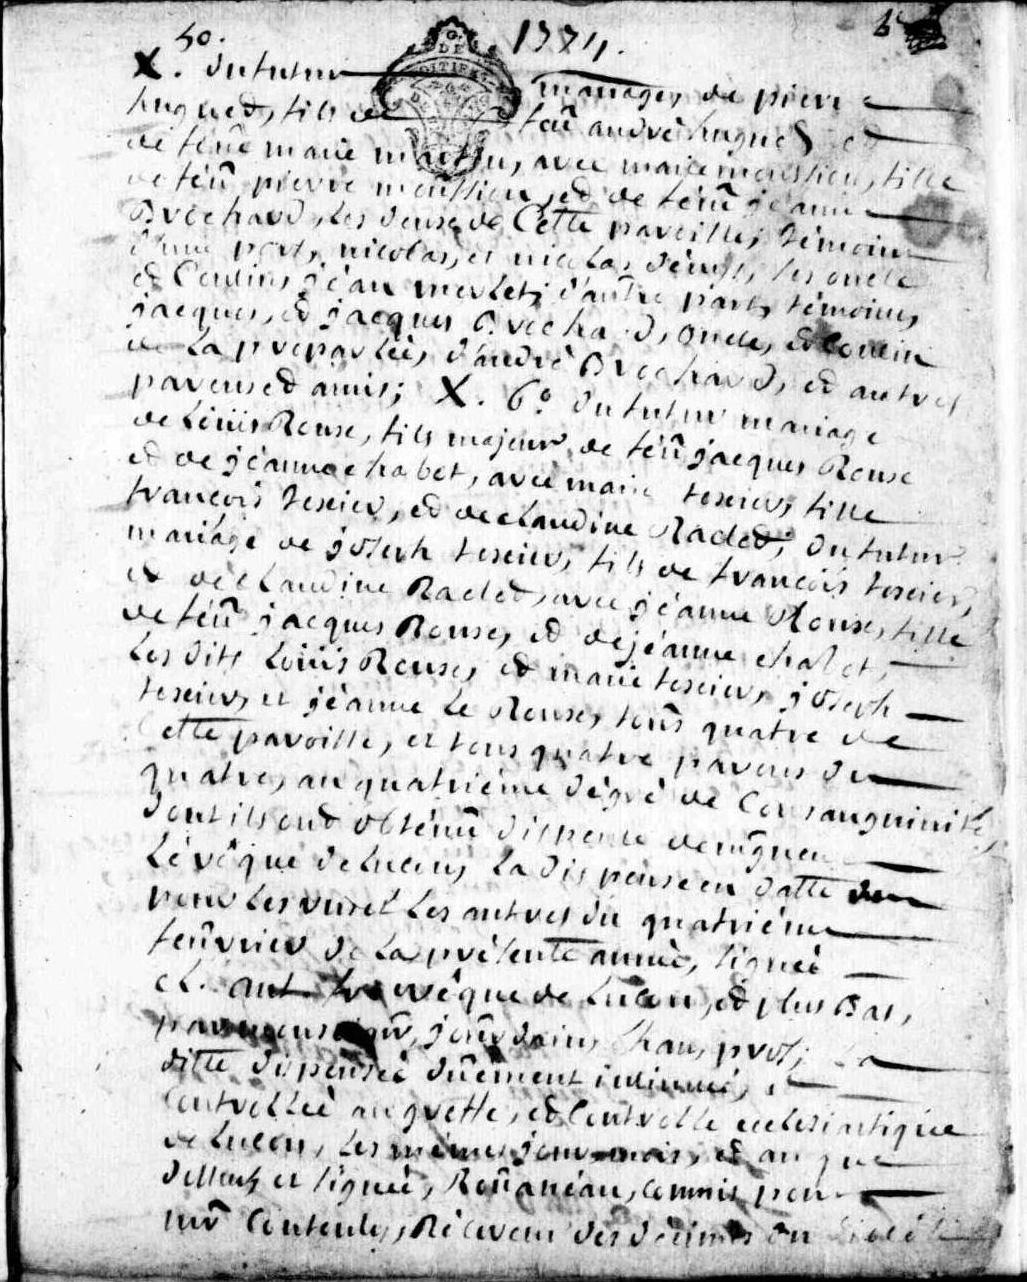 50. 1774.
X. du futur mariage, de pierre
hugued, fils de feû andré hugued, ed
de feüe marie martin, avec marie moussion, fille
de feû pierre moussion, ed de feüe jéanne
Brochard, les deux de Cette paroisse, témoins
d'une part, nicolas, et nicolas dénis, ses oncle
ed Cousin, jéan merlet, d'autre part, témoins,
jacques, ed jacques Brochard, oncle, ed Cousin
de La préparlée, d'andré Brochard, ed autres
parens ed amis; X. 6° du futur mariage
de Loüis Rouse, fils majeur, de feû jacques Rouse
ed de jéanne chabot, avec marie texier, fille
françois texier, ed de claudine Racled, du futur
mariage de joseph texier, fils de françois texier,
ed de claudine Racled, avec jéanne Rouse, fille
de feû jacques Rouse, ed de jéanne chabot,
Les dits Loüis Rouse, ed marie texier, joseph
texier, et jéanne Le Rouse, tous quatre de
Cette paroisse, et tous quatre parens du
quatre, au quatriéme dégré de Consanguinité,
dont ils ond obténû dispense de
L'évêque de Lucon, La dispense en datte
pour Les uns et Les autres du quatriéme
feûvrier de La présente année, signée
évêque de Lucon, ed plus Bas,
par monseigr, La
ditte dispense dûement insinuée,
Controllée au greffe, ed Controlle ecclesiastique
de Lucon, Les mêmes jour mois, ed an que
dessus et signée, commis pour
mr Receveur des décimes du